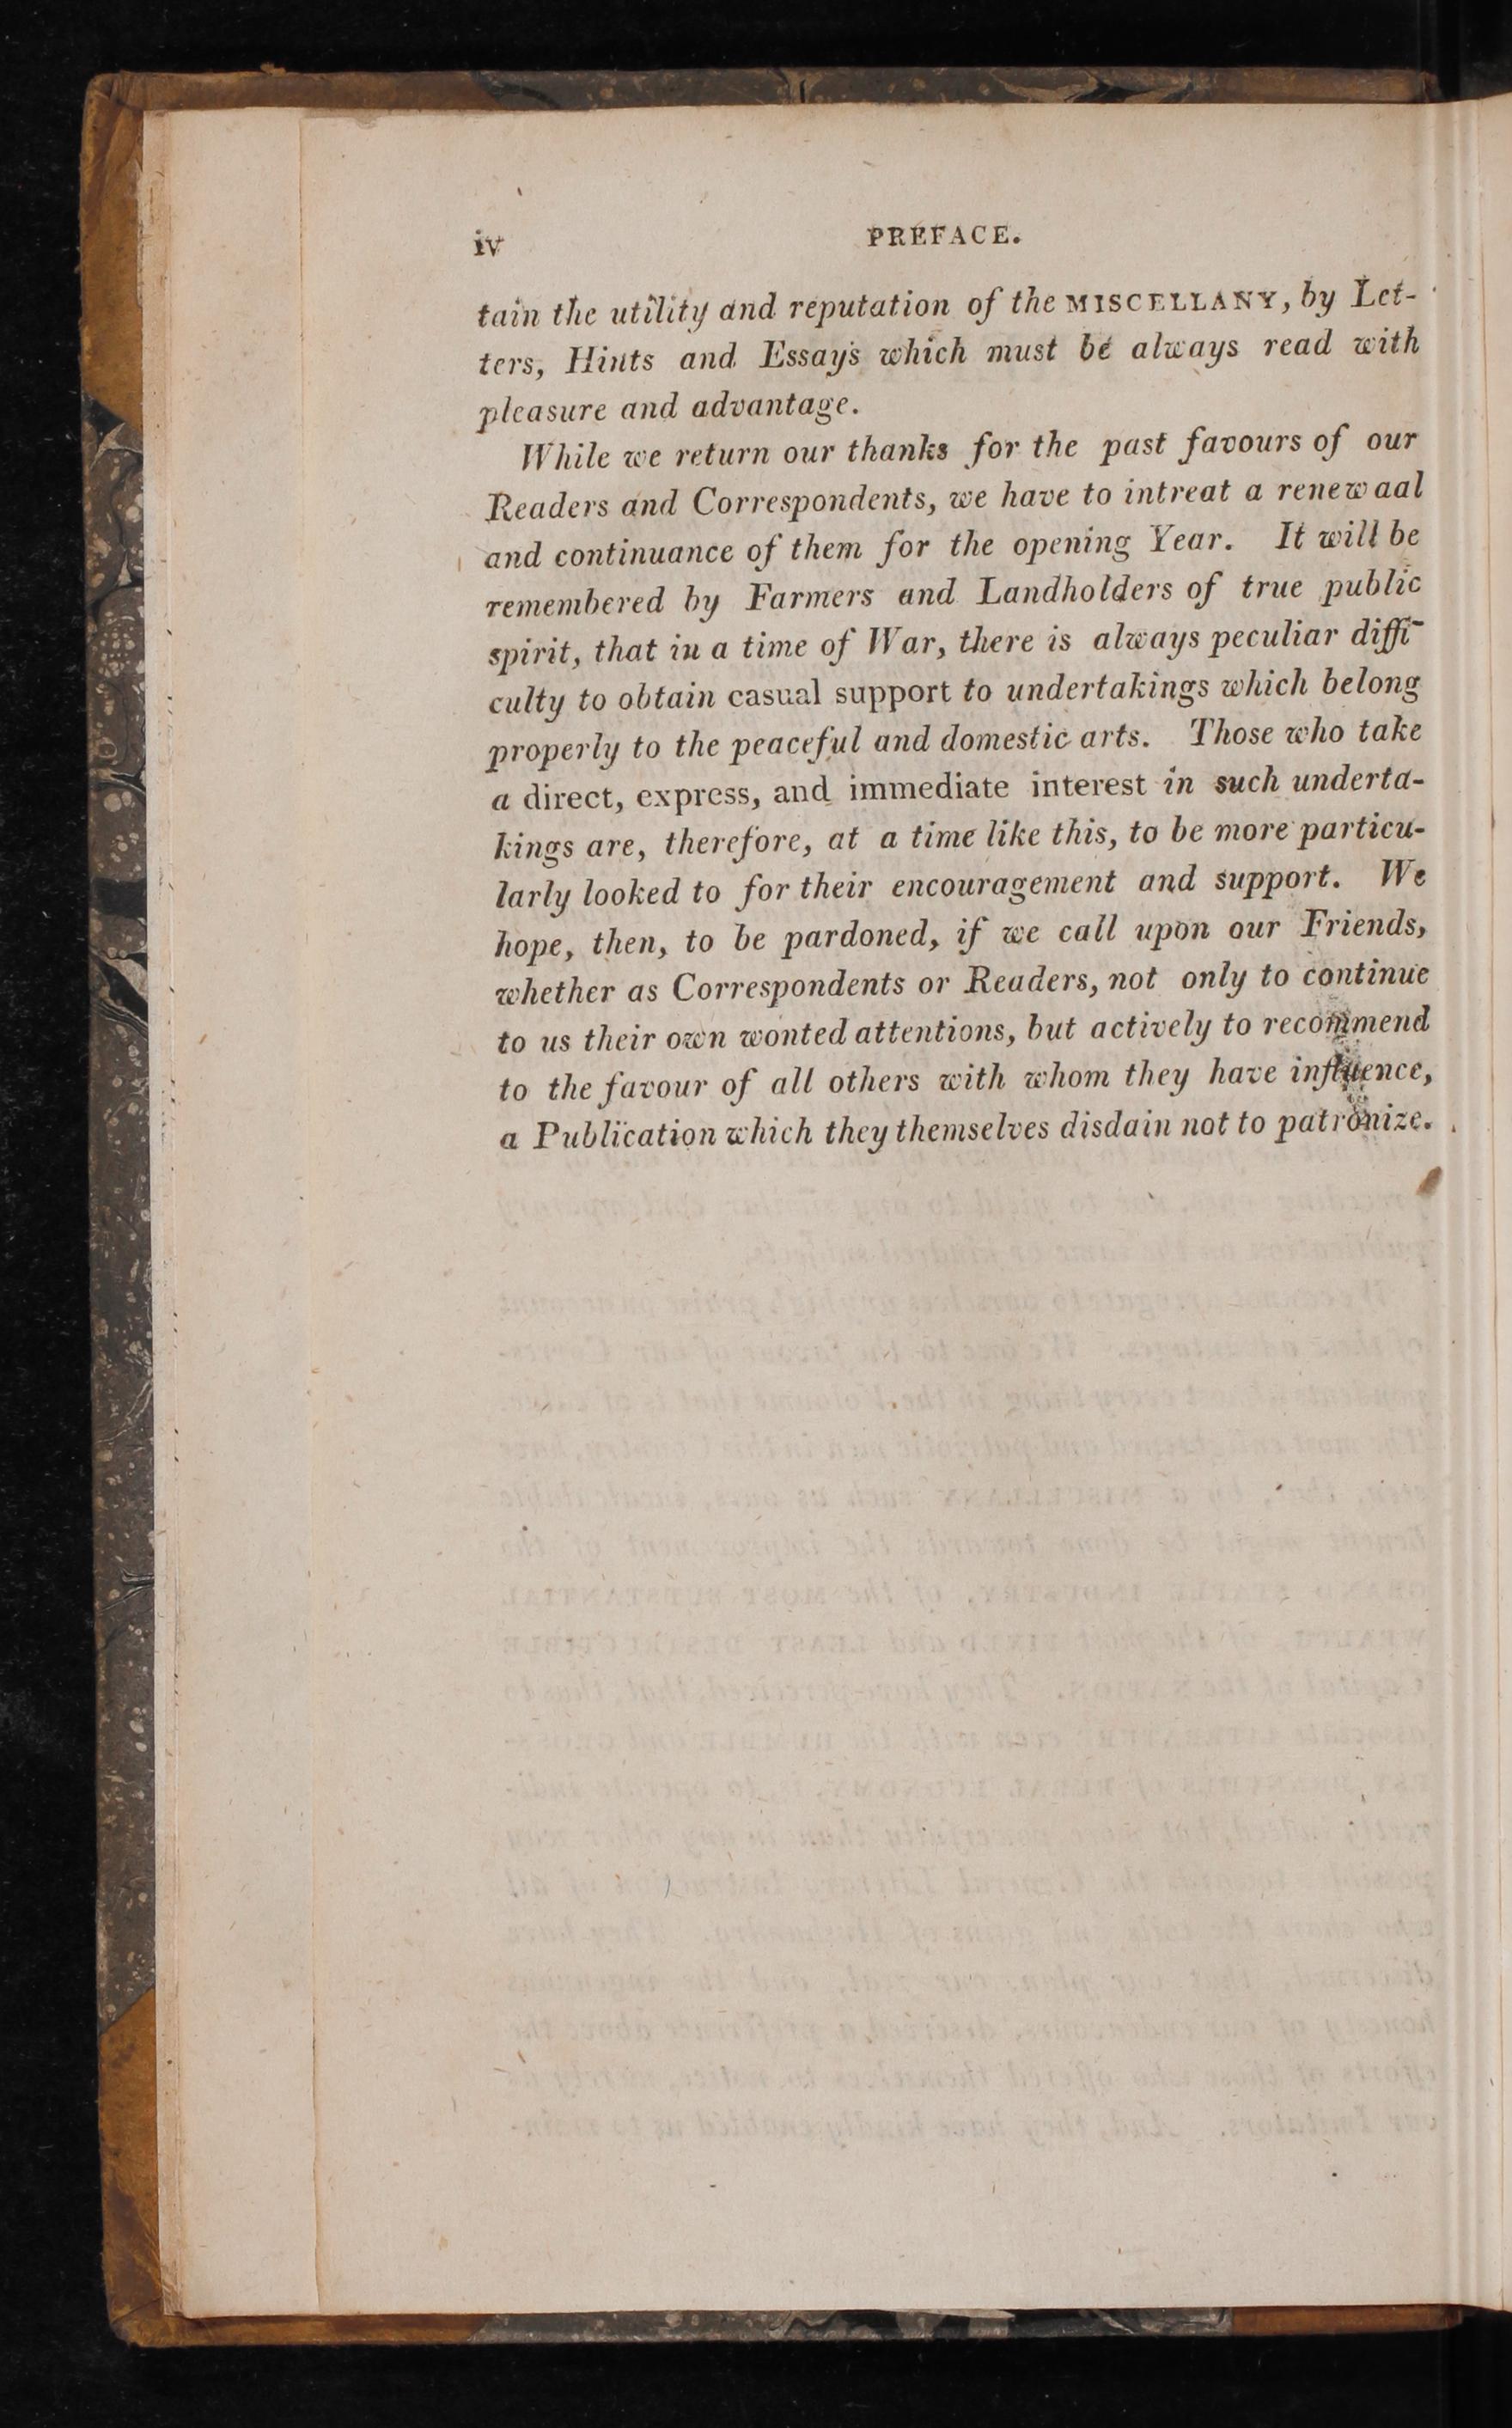 iv PREFACE.
tain the utility and reputation of the MISCELLANY, by Let-
ters, Hints and Essays which must be always read with
pleasure and advantage.
While we return our thanks for the past favours of our
Readers and Correspondents, we have to intreat a renewaal
and continuance of them for the opening Year. It will be
remembered by Farmers and Landholders of true public
spirit, that in a time of War, there is always peculiar diffi-
culty to obtain casual support to undertakings which belong
properly to the peaceful and domestic arts. Those who take
a direct, express, and immediate interest in such underta-
kings are, therefore, at a time like this, to be more particu-
larly looked to for their encouragement and support. We
hope, then, to be pardoned, if we call upon our Friends,
whether as Correspondents or Readers, not only to continue
to us their own wonted attentions, but actively to recommend
to the favour of all others with whom they have influence,
a Publication which they themselves disdain not to patronize.